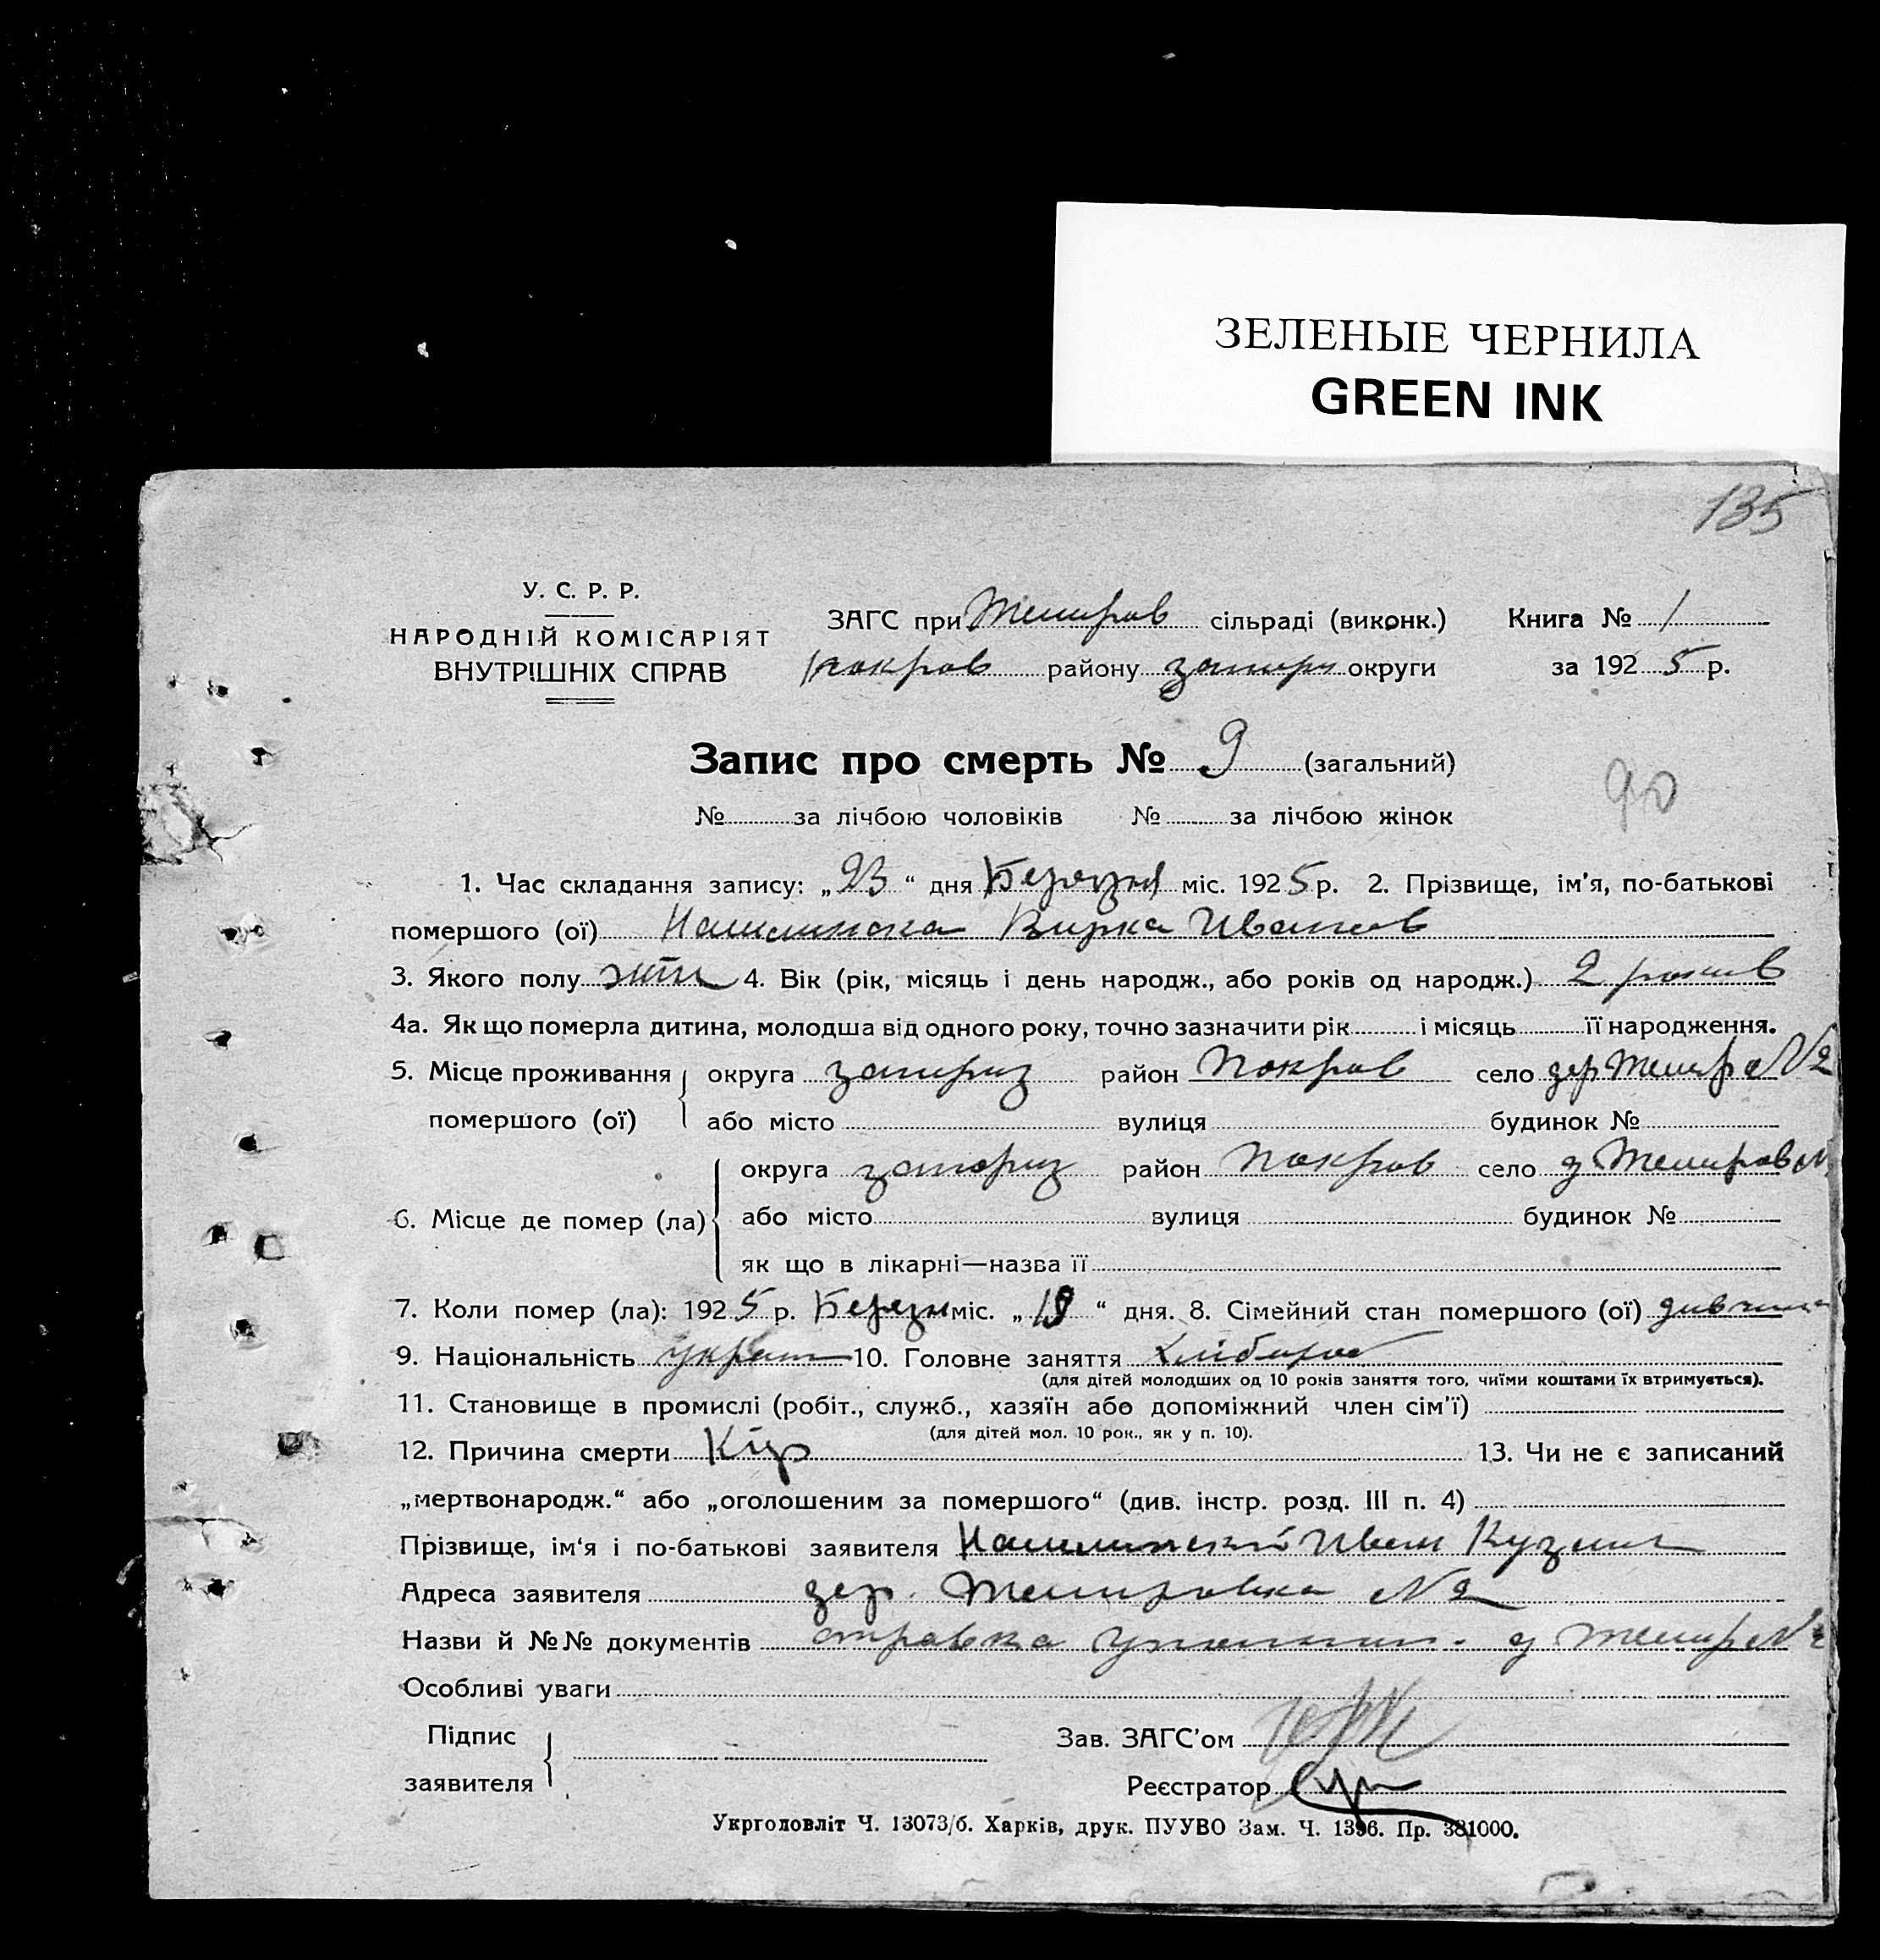 ЗЕЛЕНЫЕ ЧЕРНИЛА
GREEN INK
135
У. С. Р. Р.
НАРОДНІЙ КОМІСАРІЯТ
ВНУТРІШНІХ СПРАВ
ЗАГС при Темиров сільраді (виконк.) Книга № 1
покров району округи за 1925 р.
Запис про смерть № 9 (загальний)
90
№ за лічбою чоловіків № за лічбою жінок
1. Час складання запису: „23“ дня Березня міс. 1925 р. 2. Прізвище, ім'я, по-батькові
помершого (ої) Вирка Иванов
3. Якого полу 4. Вік (рік, місяць і день народж., або років од народж.) 2 роки
4а. Як що померла дитина, молодша від одного року, точно зазначити рік і місяць її народження.
5. Місце проживання округа запориз район Покров село дер Темир №2
помершого (ої) або місто вулиця будинок №
округа запориз район Покров село д Темиров
6. Місце де помер (ла) або місто вулиця будинок №
як що в лікарні—назва її
7. Коли помер (ла): 1925 р. Березн міс. „ “ дня. 8. Сімейний стан помершого (ої)
9. Національність 10. Головне заняття
(для дітей молодших од 10 років заняття того, чиїми коштами їх втримується).
11. Становище в промислі (робіт., служб., хазяїн або допоміжний член сім'ї)
(для дітей мол. 10 рок., як у п. 10).
12. Причина смерти Кір 13. Чи не є записаний
„мертвонародж.“ або „оголошеним за помершого“ (див. інстр. розд. III п. 4)
Прізвище, ім'я і по-батькові заявителя Иван Кузмич
Адреса заявителя дер. Темировка №2
Назви й №№ документів справка д Темир №2
Особливі уваги
Підпис
заявителя
Зав. ЗАГС'ом
Реєстратор
Укрголовліт Ч. 13073/б. Харків, друк. ПУУВО Зам. Ч. 1396. Пр. 381000.